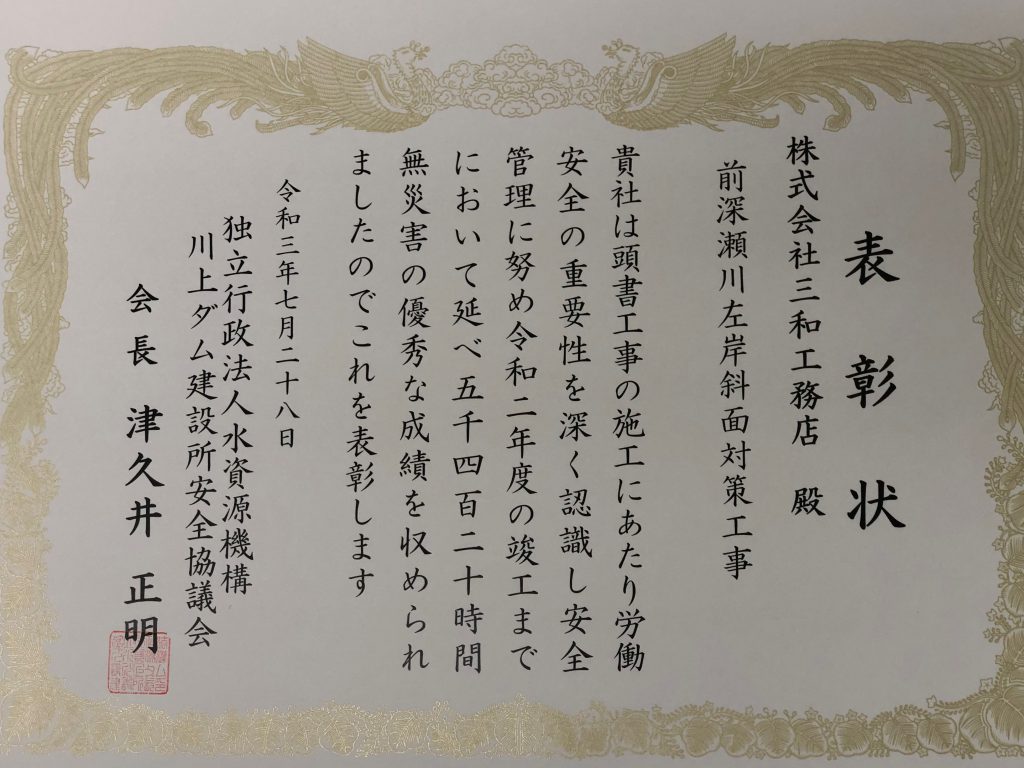 表彰状
株式会社三和工務店 殿
前深瀬川左岸斜面対策工事
貴社は頭書工事の施工にあたり労働
安全の重要性を深く認識し安全
管理に努め令和二年度の竣工まで
において延べ五千四百二十時間
無災害の優秀な成績を収められ
ましたのでこれを表彰します
令和三年七月二十八日
独立行政法人水資源機構
川上ダム建設所安全協議会
会長 津久井 正明